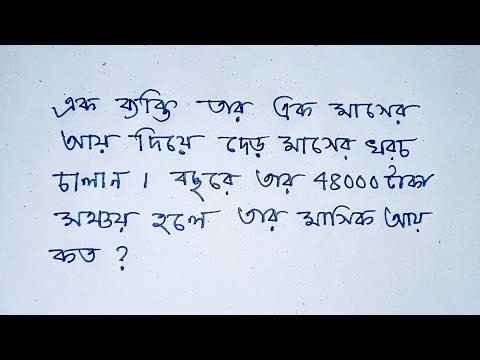 এক ব্যক্তি তার এক মাসের
আয় দিয়ে দেড় মাসের খরচ
চালান । বছরে তার 48000 টাকা
সঞ্চয় হলে তার মাসিক আয়
কত ?